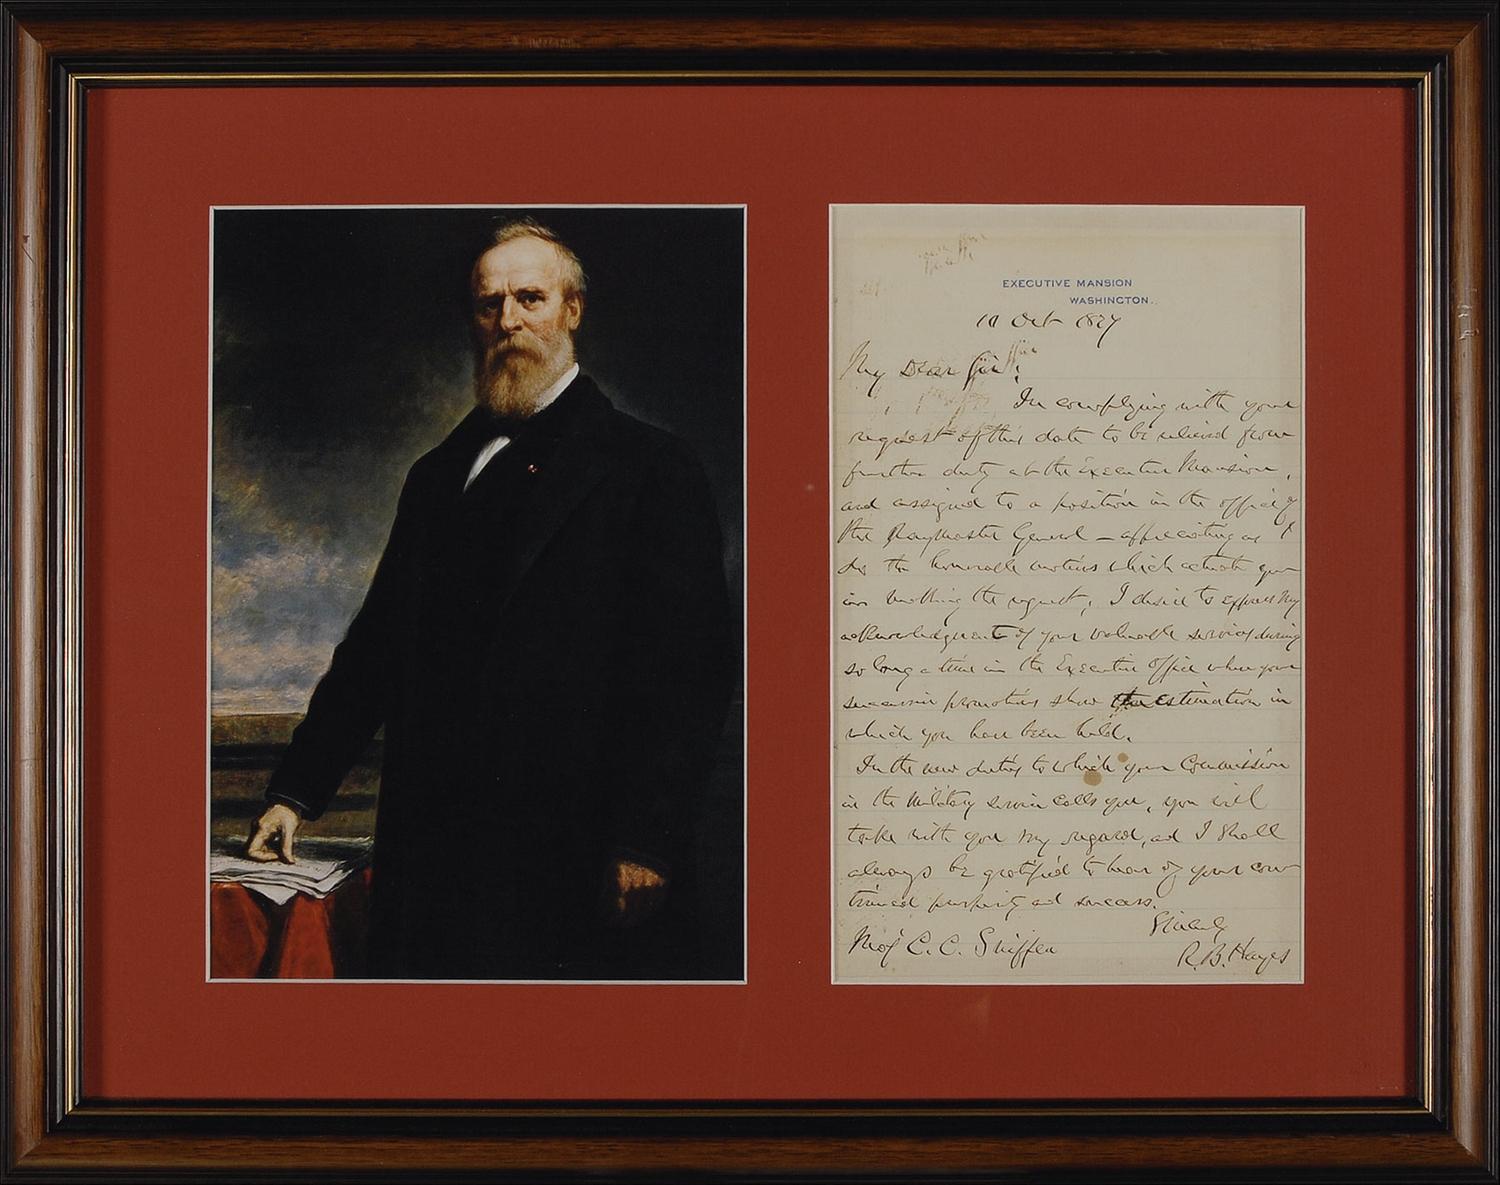 EXECUTIVE MANSION
WASHINGTON.
10 Oct 1877
My Dear Sir:
In complying with your
request of this date to be relieved from
further duty at the Executive Mansion,
and assigned to a position in the office of
the Paymaster General — appreciating as I
do the honorable motives which actuate you
in making the request, I desire to express my
acknowledgment of your valuable services during
so long a time in the Executive Office where your
successive promotions show the estimation in
which you have been held.
In the new duties to which your Commission
in the Military service calls you, you will
take with you my regard, and I shall
always be gratified to hear of your con-
tinued prosperity and success.
Sincerely
R. B. Hayes
Maj C. C. Sniffen